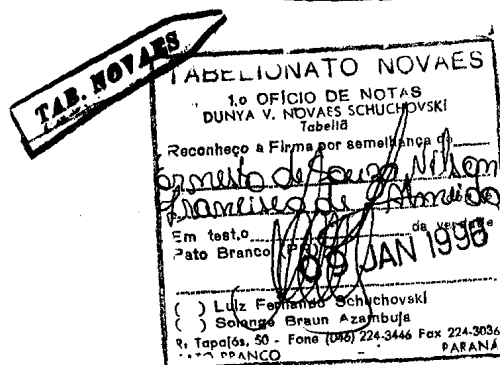 TAB. NOVAES
TABELIONATO NOVAES
1.o OFÍCIO DE NOTAS
DUNYA V. NOVAES SCHUCHOVSKI
Tabeliã
Reconheço a Firma por semelhança de
Ernesto de Souza Nilson
Francisco de Almeida
Em test.o da verdade
Pato Branco (PR) 09 JAN 1996
( ) Luiz Fernando Schuchovski
( ) Solange Braun Azambuja
R. Tapajós, 50 - Fone (046) 224-3446 Fax 224-3036
PATO BRANCO PARANÁ